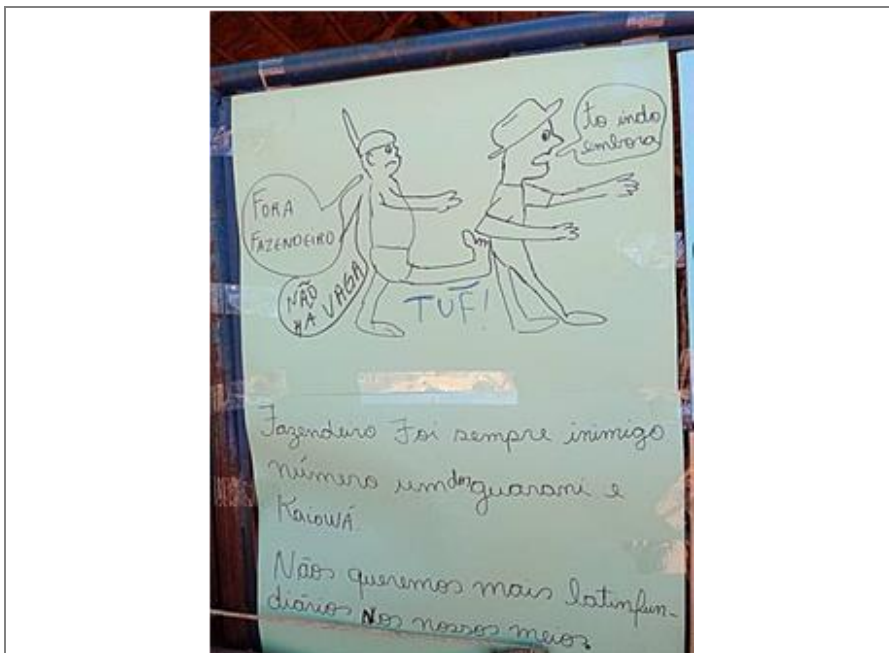 FORA
FAZENDEIRO
NÃO
HÁ VAGA
to indo
embora
TUF!
Fazendeiro Foi sempre inimigo
número um dos guarani e
Kaiowá
Nãos queremos mais latinfun-
diários Nos nossos meios